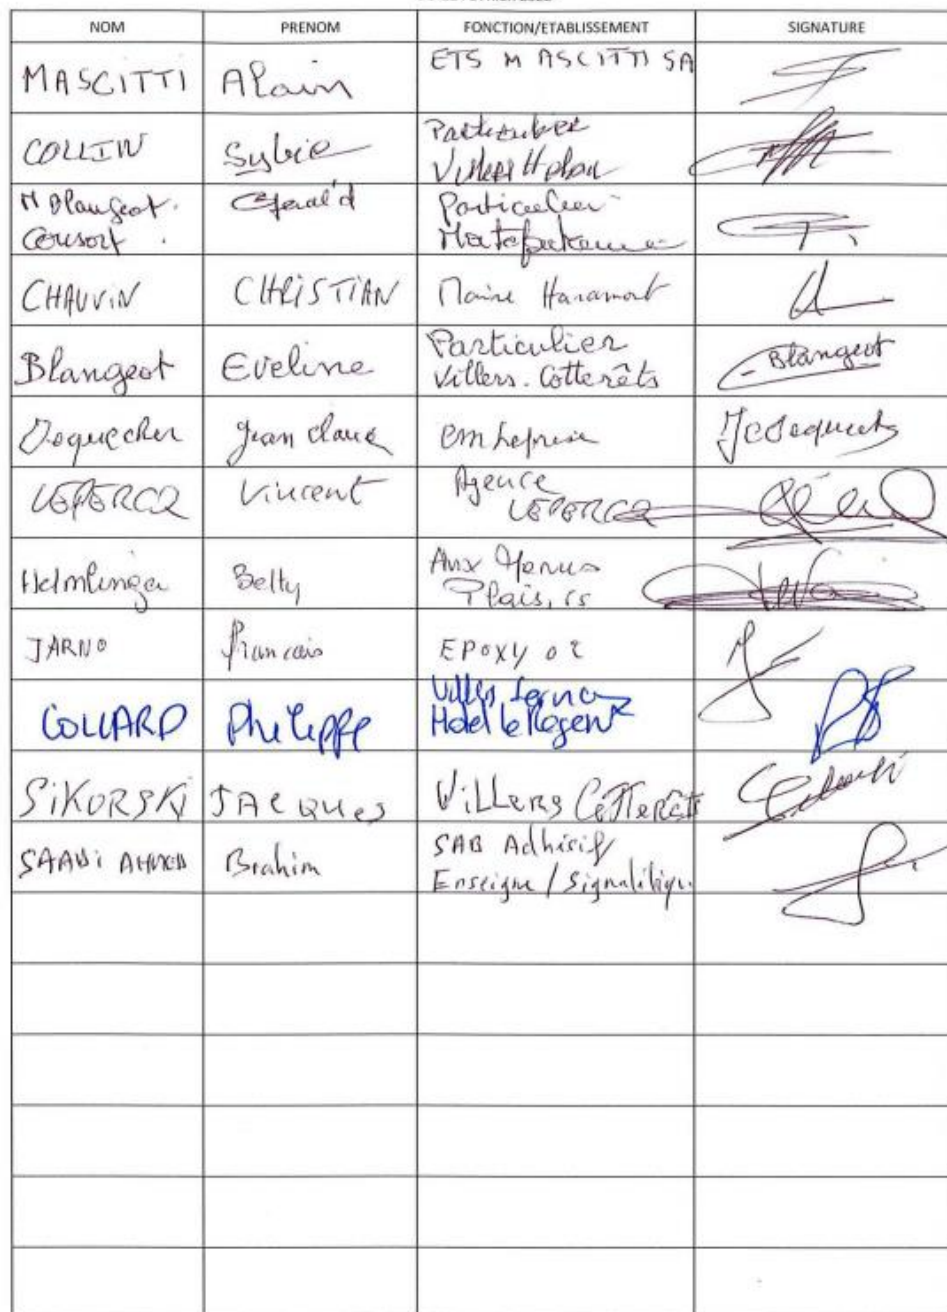 NOM PRENOM FONCTION/ETABLISSEMENT SIGNATURE
MASCITTI Alain ETS MASCITTI SA
COLLIN Sylvie Particulier
Gérald Particulier
Consort
CHAUVIN CHRISTIAN Maire Haramont
Blangeot Eveline Particulier Blangeot
Villers. Cotterêts
Jean Claude entreprise
LEPERCQ Vincent Agence
LEPERCQ
Helmlinger Betty Aux Menus
Plaisirs
JARNO Francois EPOXY 02
COLLARD Philippe
Hotel le Regent
SIKORSKI JACQUES Villers Cotterêts
SAADI AHMED Brahim SAB Adhésif
Enseigne / Signalétique